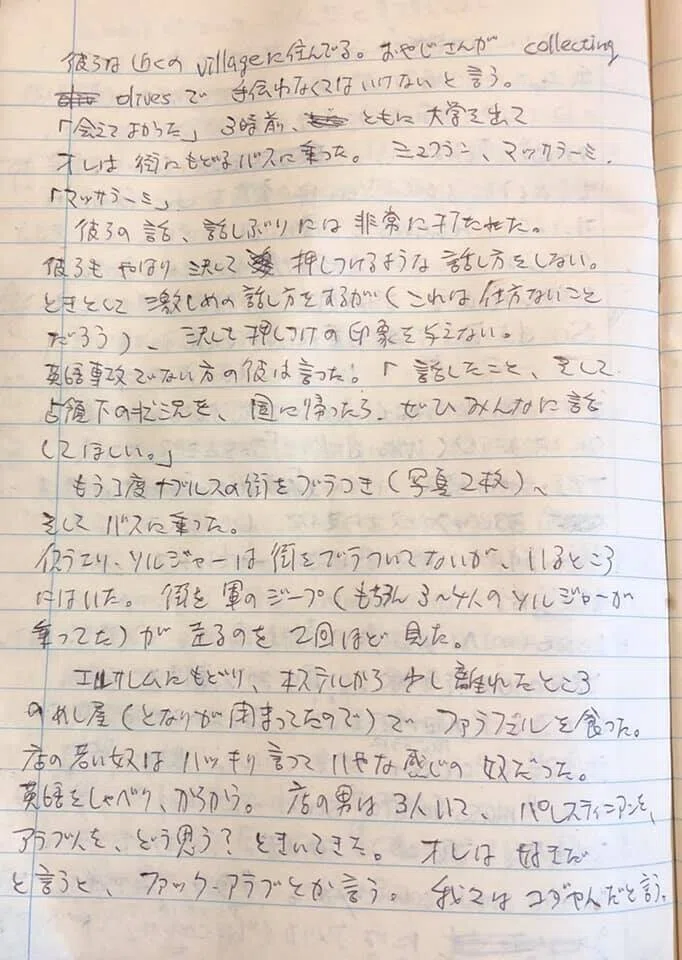 彼らは近くのvillageに住んでる。おやじさんが collecting
olives で 手伝わなくてはいけないと言う。
「会えてよかった」 3時前、ともに大学を出て
オレは 街にもどるバスに乗った。 、マッサラーミ.
「マッサラーミ」
彼らの話、話しぶりには 非常に打たれた。
彼らも やはり 決して 押しつけるような 話し方をしない。
ときとして 激しめの話し方をするが(これは仕方ないこと
だろう)、決して押しつけの印象を与えない。
英語専攻でない方の彼は言った。「話したこと、そして
占領下の状況を、国に帰ったら、ぜひみんなに話
してほしい。」
もう1度ナブルスの街をブラつき(写真2枚)、
そして バスに乗った。
イスラエリ・ソルジャーは街をブラついてないが、いるところ
にはいた。 街を軍のジープ(もちろん3〜4人のソルジャーが
乗ってた)が 走るのを 2回ほど 見た。
エルサレムにもどり、ホステルから 少し離れたところ
のめし屋(となりが閉まってたので)で ファラフェルを食った。
店の若い奴は ハッキリ言って いやな感じの 奴だった。
英語をしゃべり、からかう。 店の男は3人いて、パレスティニアンを、
アラブ人を、どう思う? ときいてきた。 オレは 好きだ
と言うと、ファック・アラブとか言う。 我々は ユダヤんだと言う。